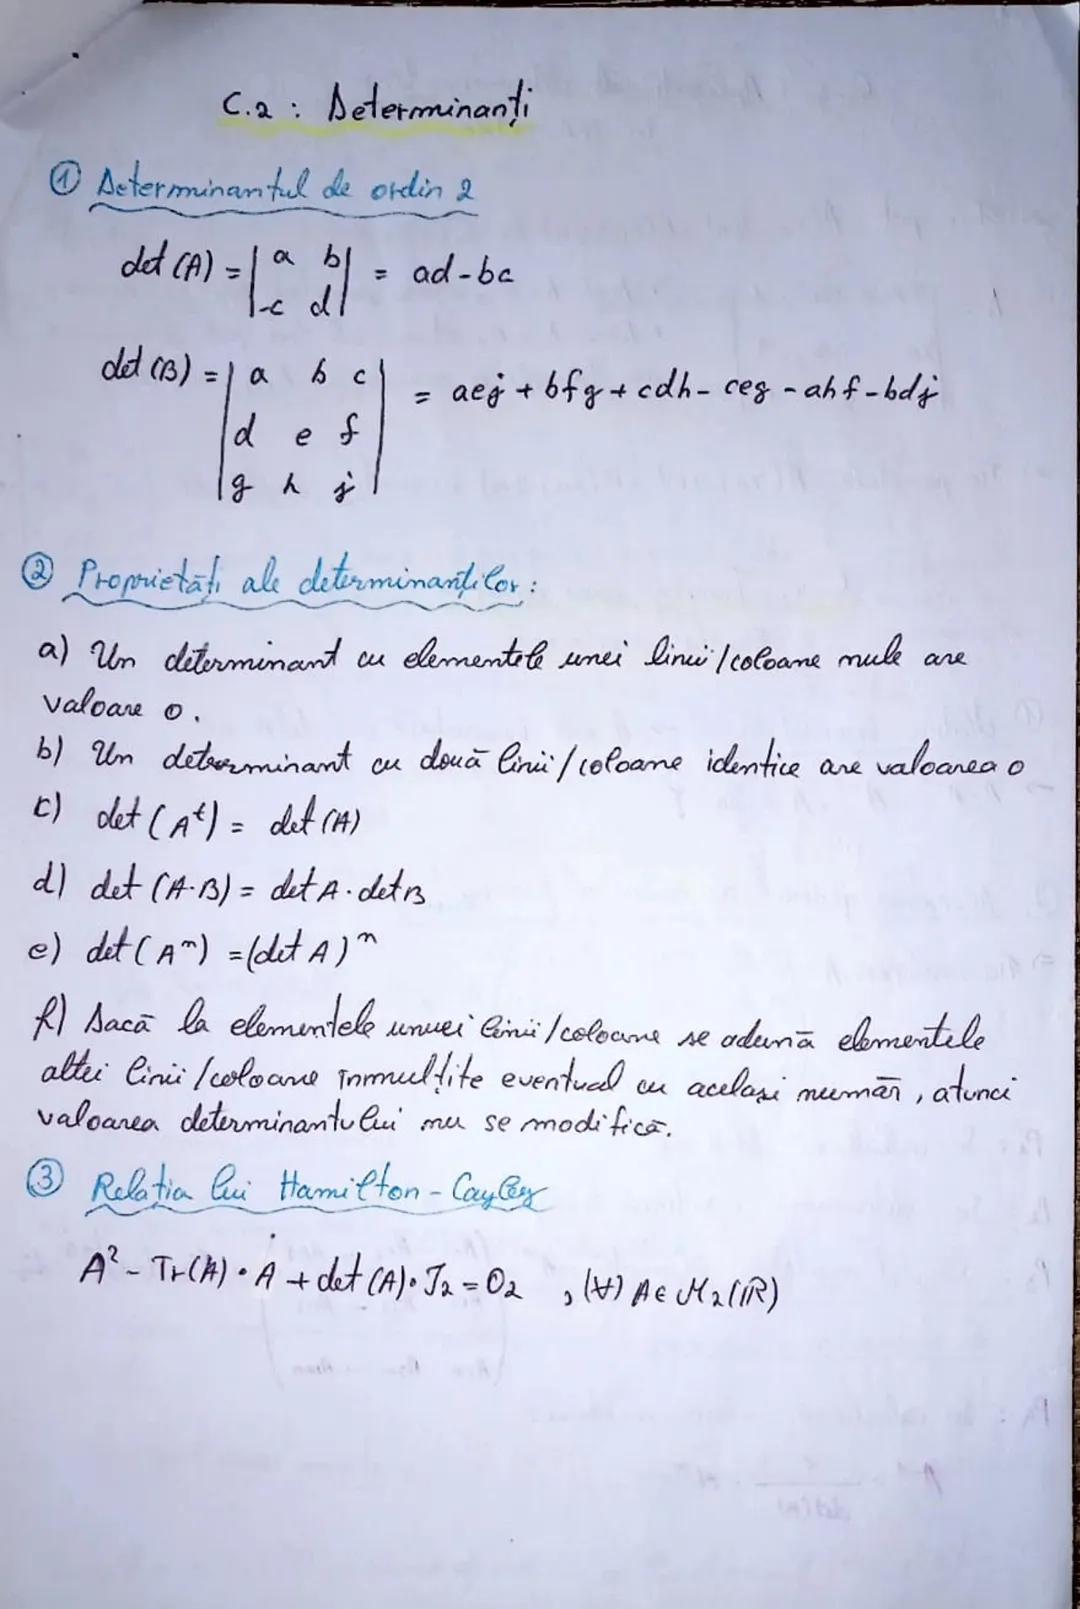 C.2 : Determinanți
① Determinantul de ordin 2
det (A) = | a b | = ad - bc
| c d |
det (B) = | a b c | = aej + bfg + cdh - ceg - ahf - bdj
| d e f |
| g h j |
② Proprietăți ale determinanților:
a) Un determinant cu elementele unei linii/coloane nule are
valoare 0.
b) Un determinant cu două linii/coloane identice are valoarea 0
c) det (Aᵗ) = det (A)
d) det (A·B) = det A · det B
e) det (Aⁿ) = (det A)ⁿ
f) Dacă la elementele unuei linii/coloane se adună elementele
altei linii/coloane înmulțite eventual cu același număr, atunci
valoarea determinantului nu se modifică.
③ Relația lui Hamilton-Cayley
A² - Tr(A) · A + det (A) · I₂ = O₂ , (∀) A ∈ M₂(ℝ)